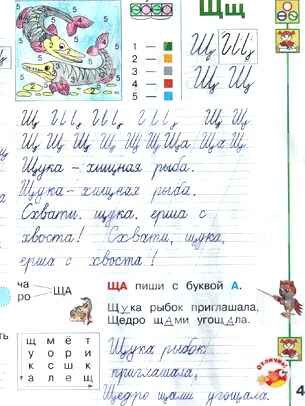 Щщ
1 —
2 —
3 —
4 —
5 —
Щ Щ
Щ Щ
Щ Щ Щ Щ Щ Щ
Щ Щ Щ Щ Щ Щ Ща Ща Щ
Щука - хищная рыба.
Щука - хищная рыба.
Схвати, щука, ерша с
хвоста! Схвати, щука,
ерша с хвоста!
ча
ро
ЩА
ЩА пиши с буквой А.
Щука рыбок приглашала,
Щедро щАми угощАла.
щ м ё т
у о р и
к с ш к
а л е щ
Щука рыбок
приглашала,
Щедро щами угощала.
отлично!
4